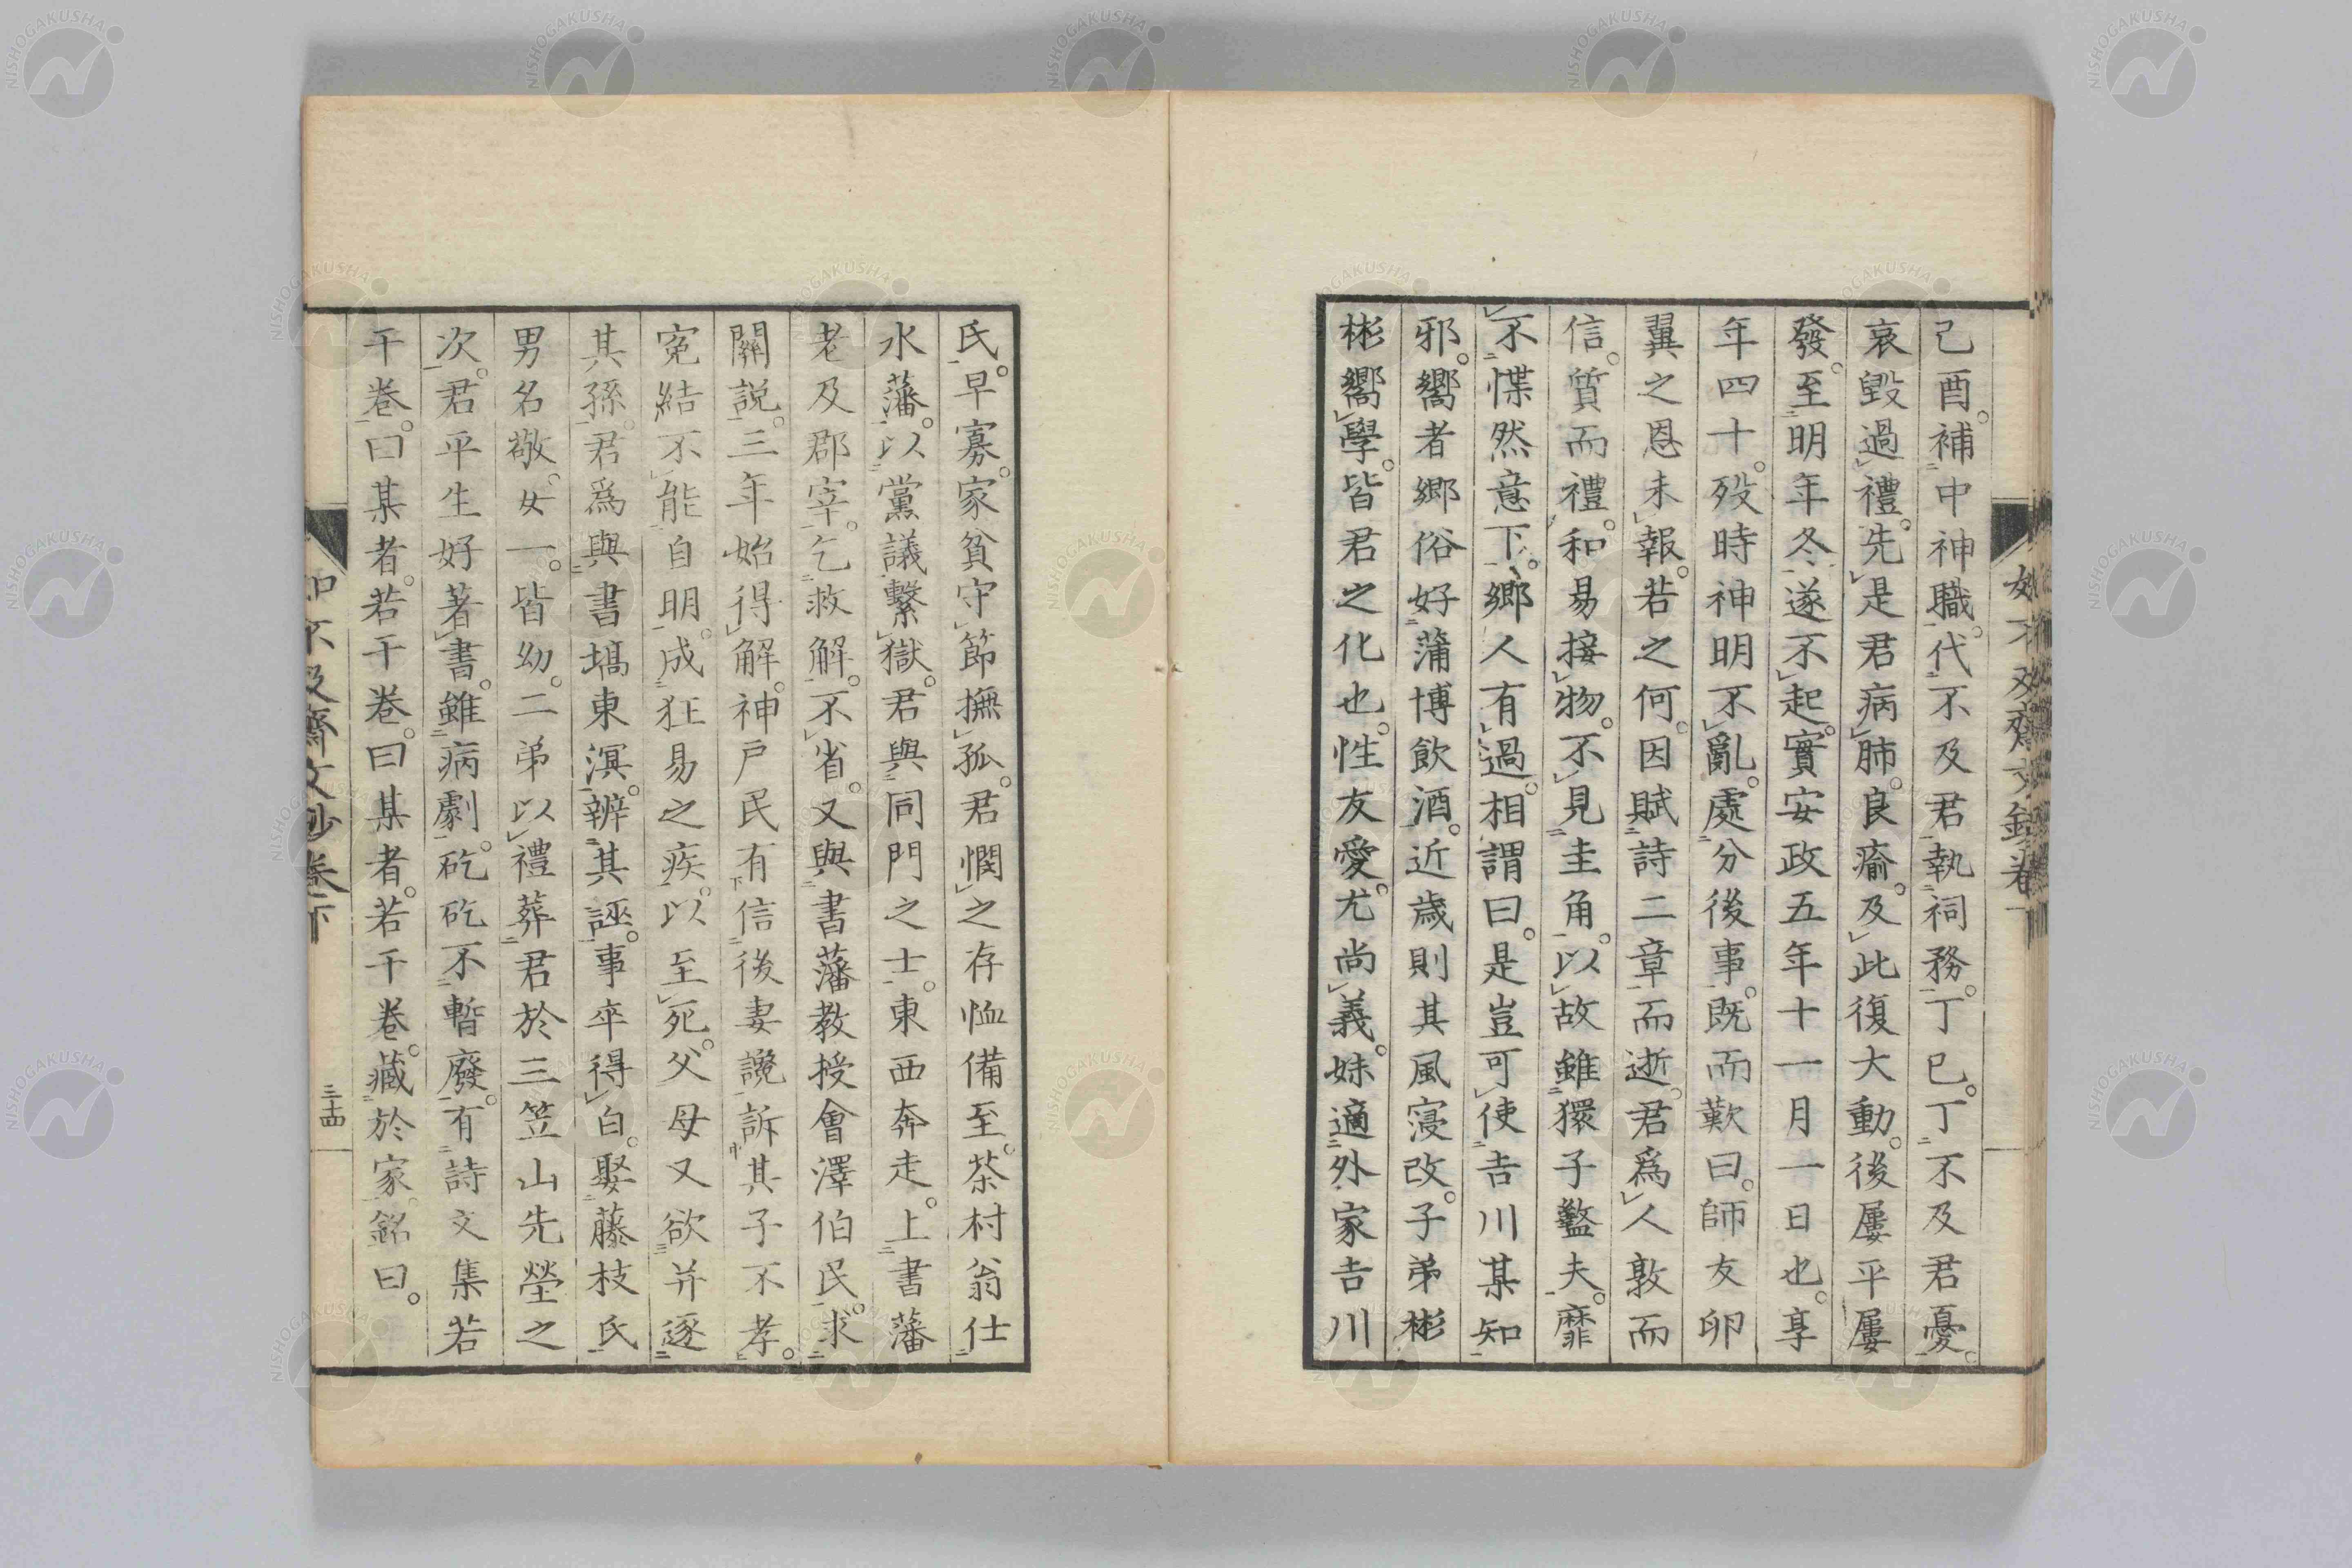 己酉。補中神職。代不及君執祠務。丁巳。丁不及君憂。
哀毀過禮。先是君病肺。良瘉。及此復大動。後屢平屢
發。至明年冬。遂不起。實安政五年十一月一日也。享
年四十。歿時神明不亂。處分後事。既而歎曰。師友卵
翼之恩未報。若之何。因賦詩二章而逝。君爲人敦而
信。質而禮。和易接物。不見圭角。以故雖獧子盭夫。靡
不惵然意下。鄉人有過。相謂曰。是豈可使吉川某知
邪。嚮者鄉俗好蒲博飲酒。近歲則其風寖改。子弟彬
彬嚮學。皆君之化也。性友愛。尤尚義。妹適外家吉川
氏。早寡。家貧守節撫孤。君憫之存恤備至。茶村翁仕
水藩。以黨議繫獄。君與同門之士。東西奔走。上書藩
老及郡宰。乞救解。不省。又與書藩教授會澤伯民。求
關説。三年始得解。神戸民有信後妻讒訴其子不孝。
寃結不能自明。成狂易之疾。以至死。父母又欲并逐
其孫。君爲與書塙東溟。辨其誣。事卒得白。娶藤枝氏
男名敬。女一。皆幼。二弟以禮葬君於三笠山先塋之
次。君平生好著書。雖病劇。矻矻不暫廢。有詩文集若
干卷。曰某者。若干卷。曰某者。若干卷。藏於家。銘曰。
如不及齋文鈔卷下
三十四
NISHOGAKUSHA